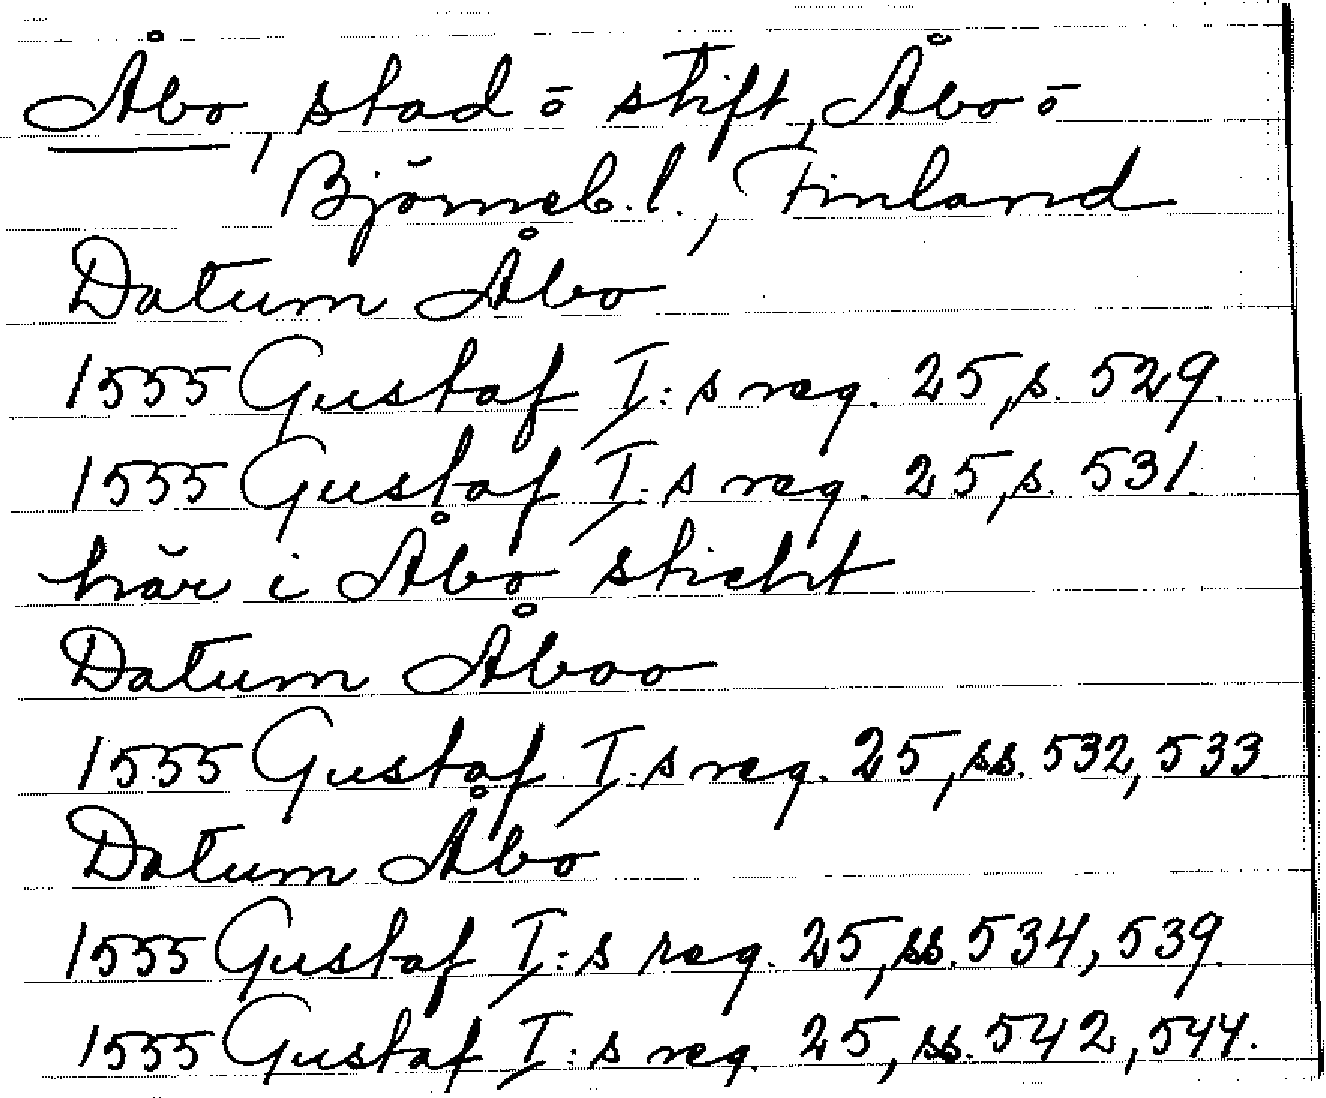 Åbo, stad o stift, Åbo o
Björneb. l., Finland
Datum Åbo
1555 Gustaf I:s reg. 25, s. 529.
1555 Gustaf I:s reg. 25, s. 531.
här i Åbo sticht
Datum Åboo
1555 Gustaf I:s reg. 25, ss. 532, 533
Datum Åbo
1555 Gustaf I:s reg. 25, ss. 534, 539.
1555 Gustaf I:s reg. 25, ss. 542, 544.